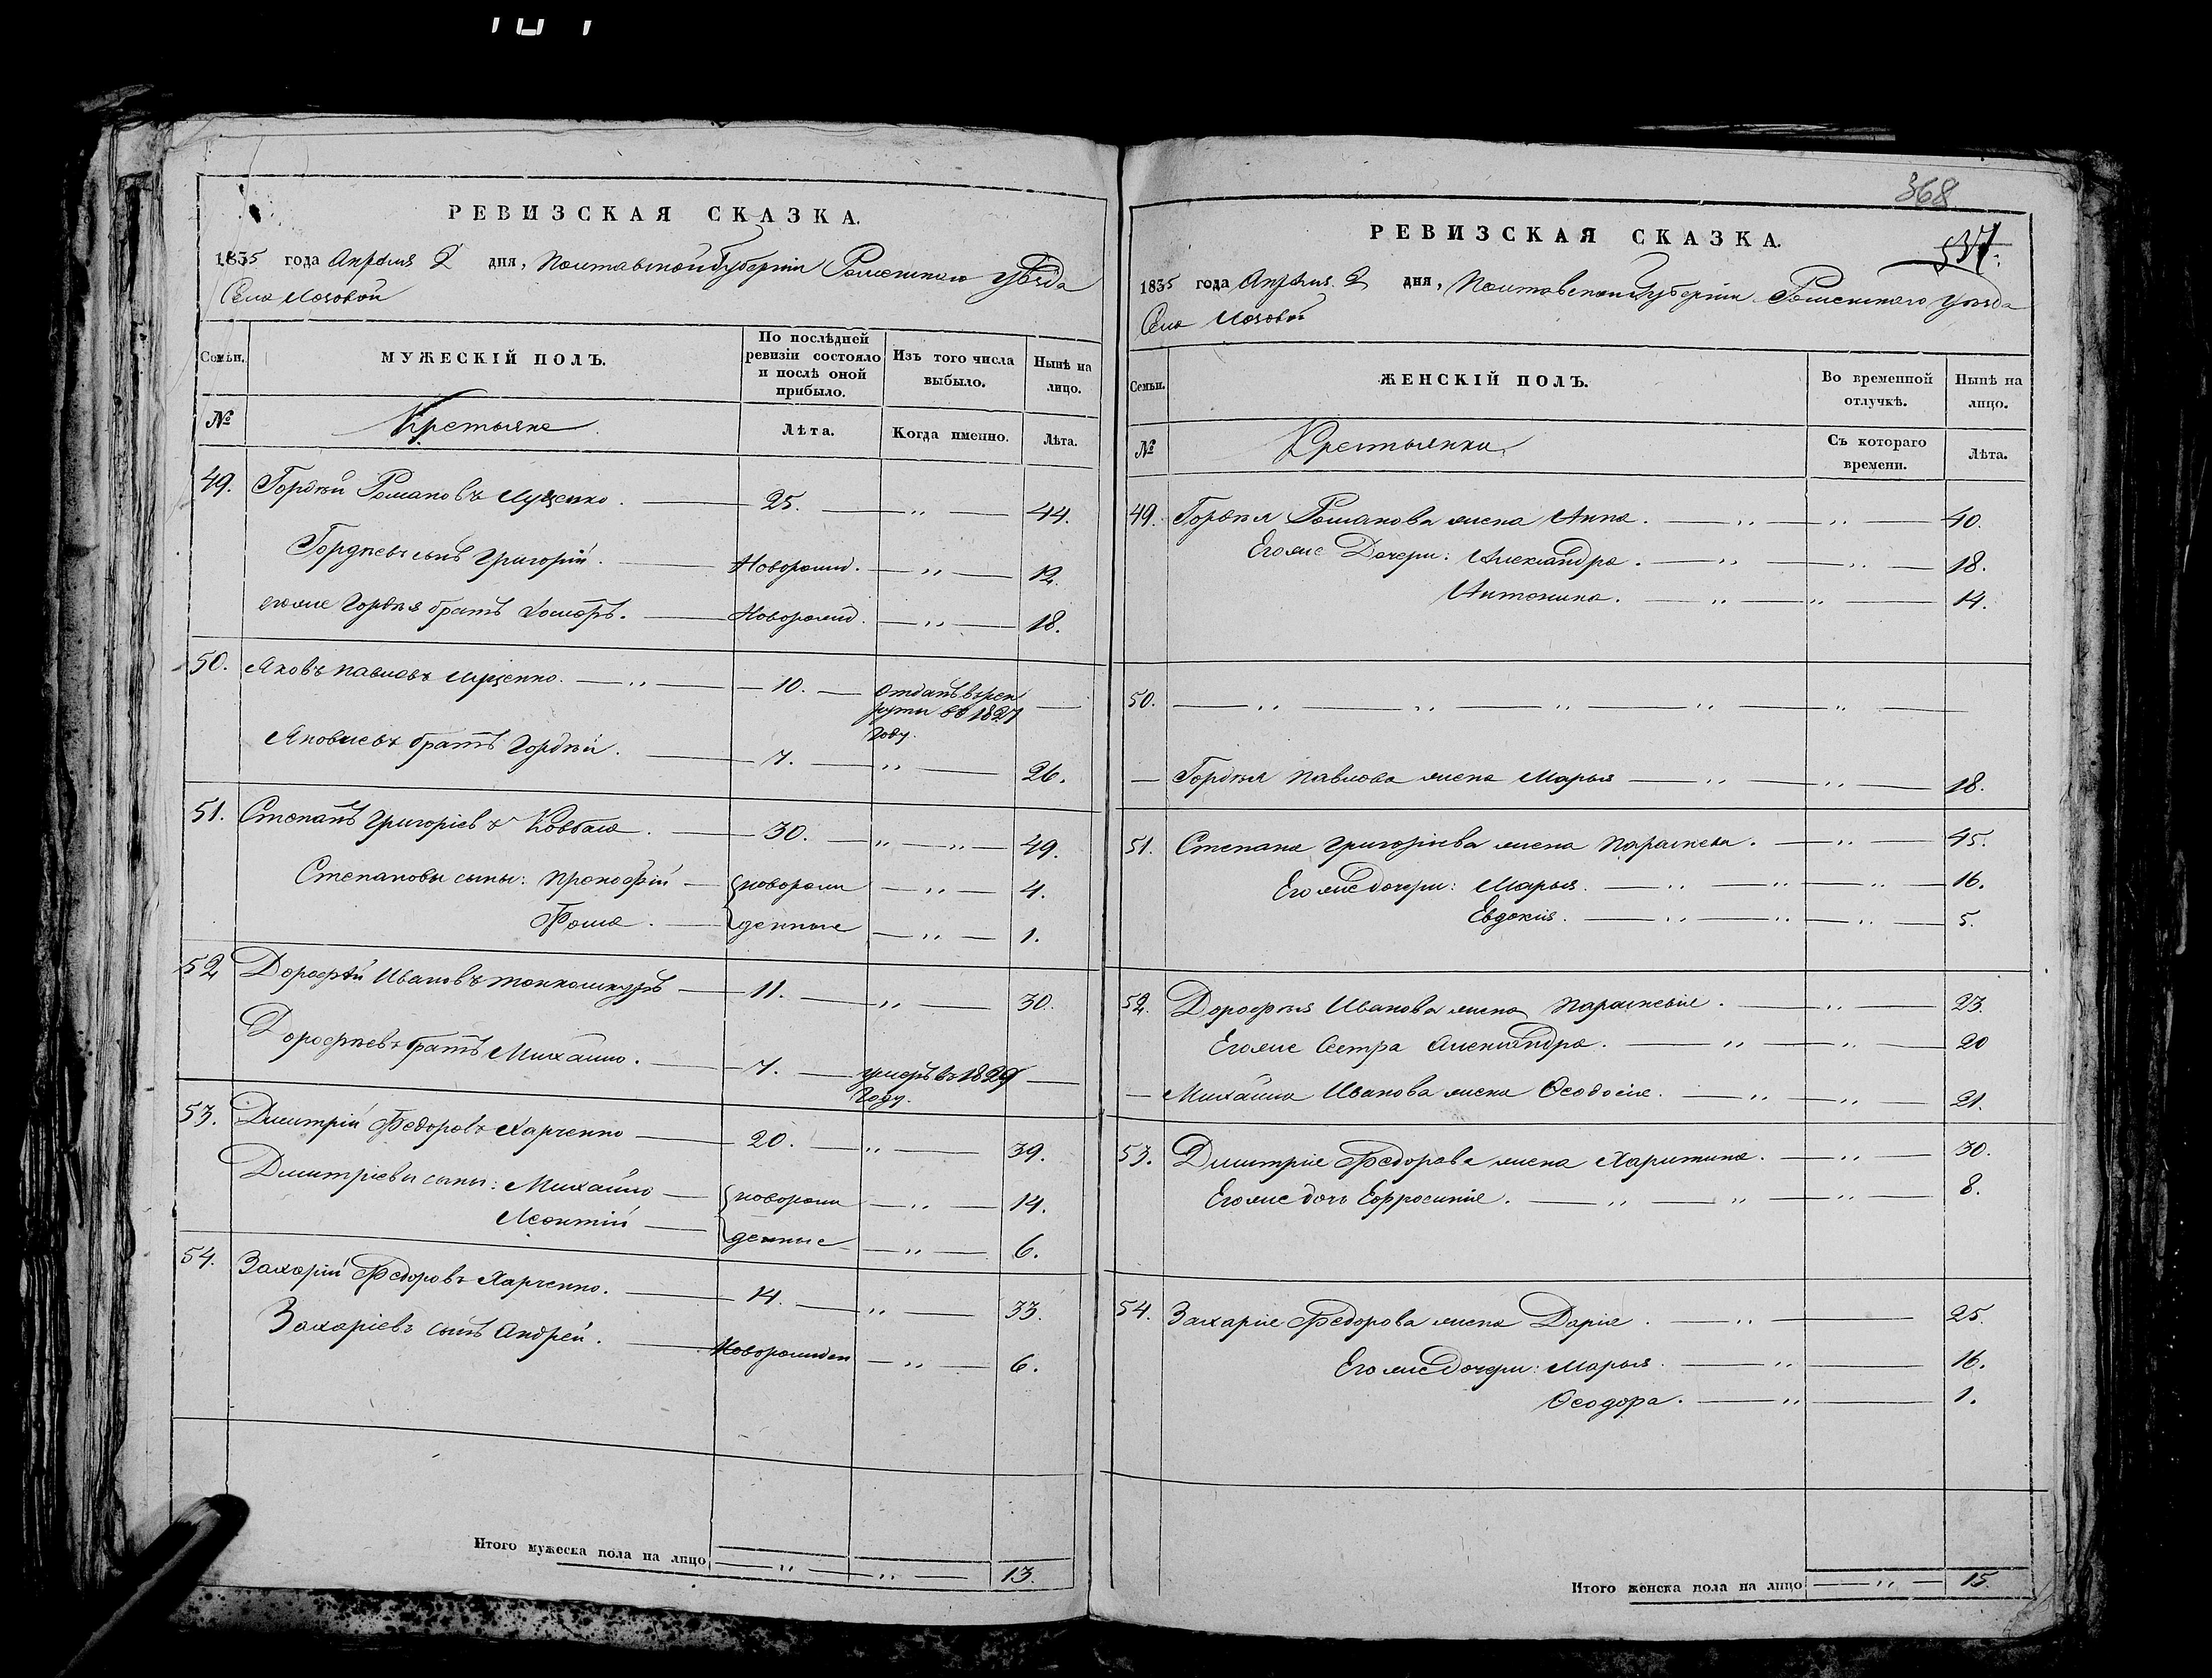 РЕВИЗСКАЯ СКАЗКА.
1835 года Апреля 2 дня, Полтавской Губернии Роменского уезда
Села
Семьи. МУЖЕСКІЙ ПОЛЪ. По послѣдней ревизіи состояло и послѣ оной прибыло. Изъ того числа выбыло. Нынѣ на лицо.
№ Крестьяне Лѣта. Когда именно. Лѣта.
49. Гордѣй Романовъ Иущенко. 25. 44.
Гордѣевъ сынъ Григорій. Новорожд. 12.
его же Гордѣя братъ Новорожд. 18.
50. Яковъ Павловъ 10. отданъ в рек
руты въ 1827
году.
Яковлевъ братъ Гордѣй. 7. 26.
51. Степанъ Григорьевъ Ковбаса. 30. 49.
Степановы сыны: Прокофій новорож 4.
Фома. денные 1.
52 Дорофѣй Ивановъ Тонкошкуръ 11. 30.
Дорофѣевъ братъ Михайло. 7. умеръ въ 1829
году.
53. Дмитрій Федоровъ Харченко 20. 39.
Дмитріевы сыны: Михайло новорож 14.
Леонтій денные 6.
54. Захарій Федоровъ Харченко. 14. 33.
Захаріевъ сынъ Андрей. Новорожден 6.
Итого мужеска пола на лицо 13.
368
РЕВИЗСКАЯ СКАЗКА.
1835 года Апреля 2 дня, Полтавской Губернии Роменского уезда
Села
Семьи. ЖЕНСКІЙ ПОЛЪ. Во временной отлучкѣ. Нынѣ на лицо.
№ Крестьянки Съ котораго времени. Лѣта.
49. Гордѣя Романова жена Анна. 40.
Его же Дочери: Александра. 18.
Антонина. 14.
50.
Гордѣя Павлова жена Марья 18.
51. Степана Григорьева жена Параскева. 45.
Его же дочери: Марья. 16.
Евдокія. 5.
52. Дорофѣя Иванова жена Параскевія. 23.
Его же Сестра Александра. 20
Михайла Иванова жена Ѳеодосія. 21.
53. Дмитрія Федорова жена Харитина. 30.
Его же дочь Ефросинія. 8.
54. Захарія Федорова жена Дарія. 25.
Его же дочери: Марья. 16.
Ѳеодора. 1.
Итого женска пола на лицо 15.